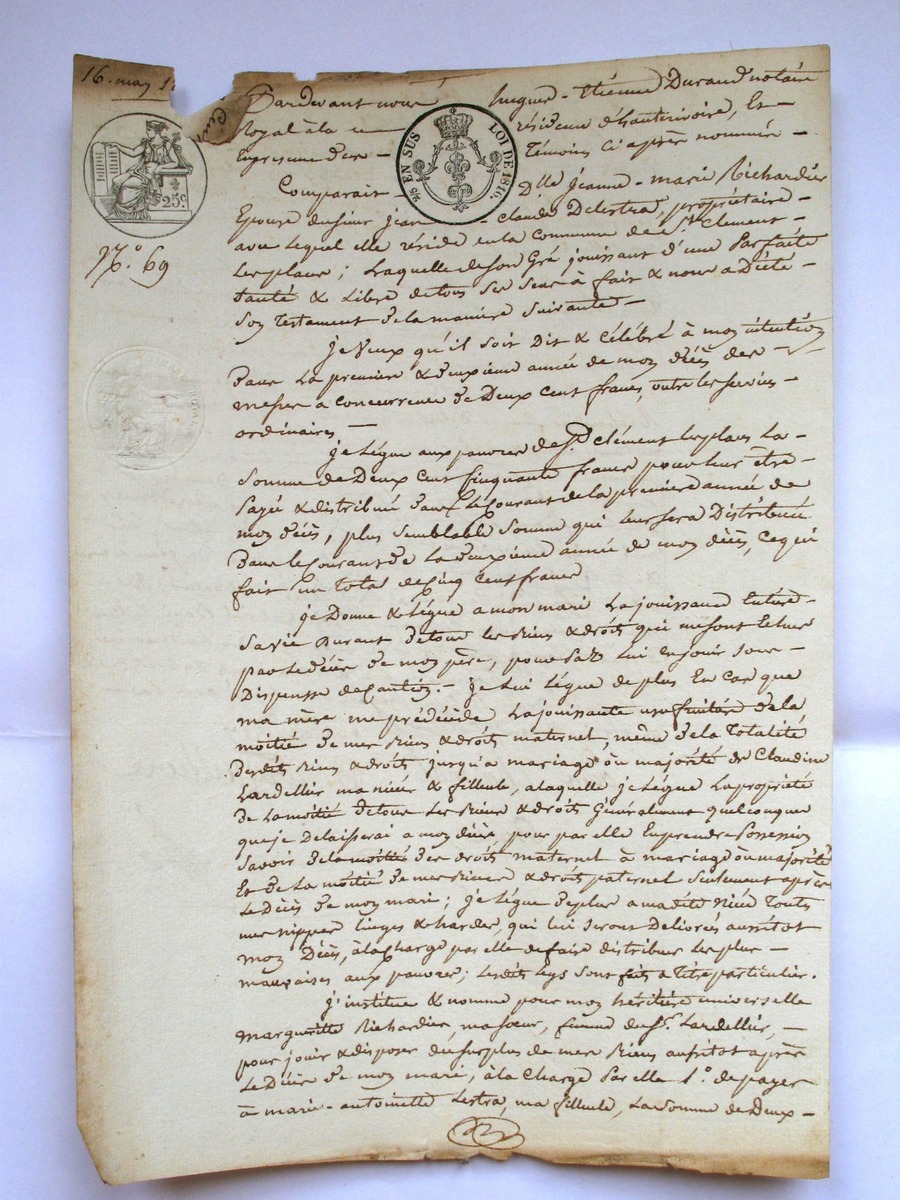 16. may 1
Pardevant nous hugues-Etienne Durand notaire
Royal à la résidence d'hauterivoire, Et
En presence des témoins Ci après nommés
2/5 EN SUS LOI DE 1816.
25c
Comparait Dlle jeanne-marie Richardier
Epouse du sieur jean-claude Delestra, propriétaire
avec lequel elle réside en la Commune de St. Clement
N.o 69
Les places; Laquelle de son Gré jouissant d'une parfaite
santé & Libre de tous ses sens à fait & nous a Dicté
Son testament de la manière suivante
je Veux qu'il soit Dit & Célébré à mon intention
Dans La premiere & deuxième année de mon décès des
messes a Concurrence de Deux Cent francs, outre les services
ordinaires
je Lègue aux pauvres de St. Clément Les places La
Somme de Deux Cent Cinquante francs pour leur être
payé & distribué dans le Courant de la première année de
mon décès, plus semblable Somme qui leur sera Distribuée
Dans le Courant de la deuxième année de mon décès, Ce qui
fait un total de Cinq Cent francs
je Donne & Lègue a mon mari La jouissance Entière
Sa vie Durant de tous les Biens & droits qui me sont Echus
par le décès de mon père, pour par Lui en jouir sous
Dispense de Caution. je Lui Lègue de plus En Cas que
ma mère me prédécède La jouissance usufruitière de la
moitié de mes Biens & droits maternel, même de la totalité
desdits Biens & droits jusqu'a mariage ou majorité de Claudine
Lardellier ma nièce & filleule, a laquelle je Lègue La propriété
de La moitié de tous Les Biens & droits Généralement quelconque
que je Delaisserai a mon décès pour par elle En prendre Possession
Savoir de la moitié des droits maternel à mariage ou majorité
Et de La moitié de mes Biens & droits paternel Seulement après
Le Décès de mon mari; je Lègue de plus a madite Nièce Touts
mes nippes Linges & hardes, qui lui seront Delivrés aussitot
mon Décès, à la Charge par elle de faire distribuer les plus
mauvaises aux pauvres; Lesdits legs sont faits a titre particulier.
j'institue & nomme pour mon héritière universelle
marguerite Richardier, ma soeur, femme du Sr. Lardellier,
pour jouir & disposer du surplus de mes Biens aussitot après
Le Décès de mon mari, à la Charge Par elle 1.o de payer
à marie-antoinette Lestra, ma filleule, La somme de Deux